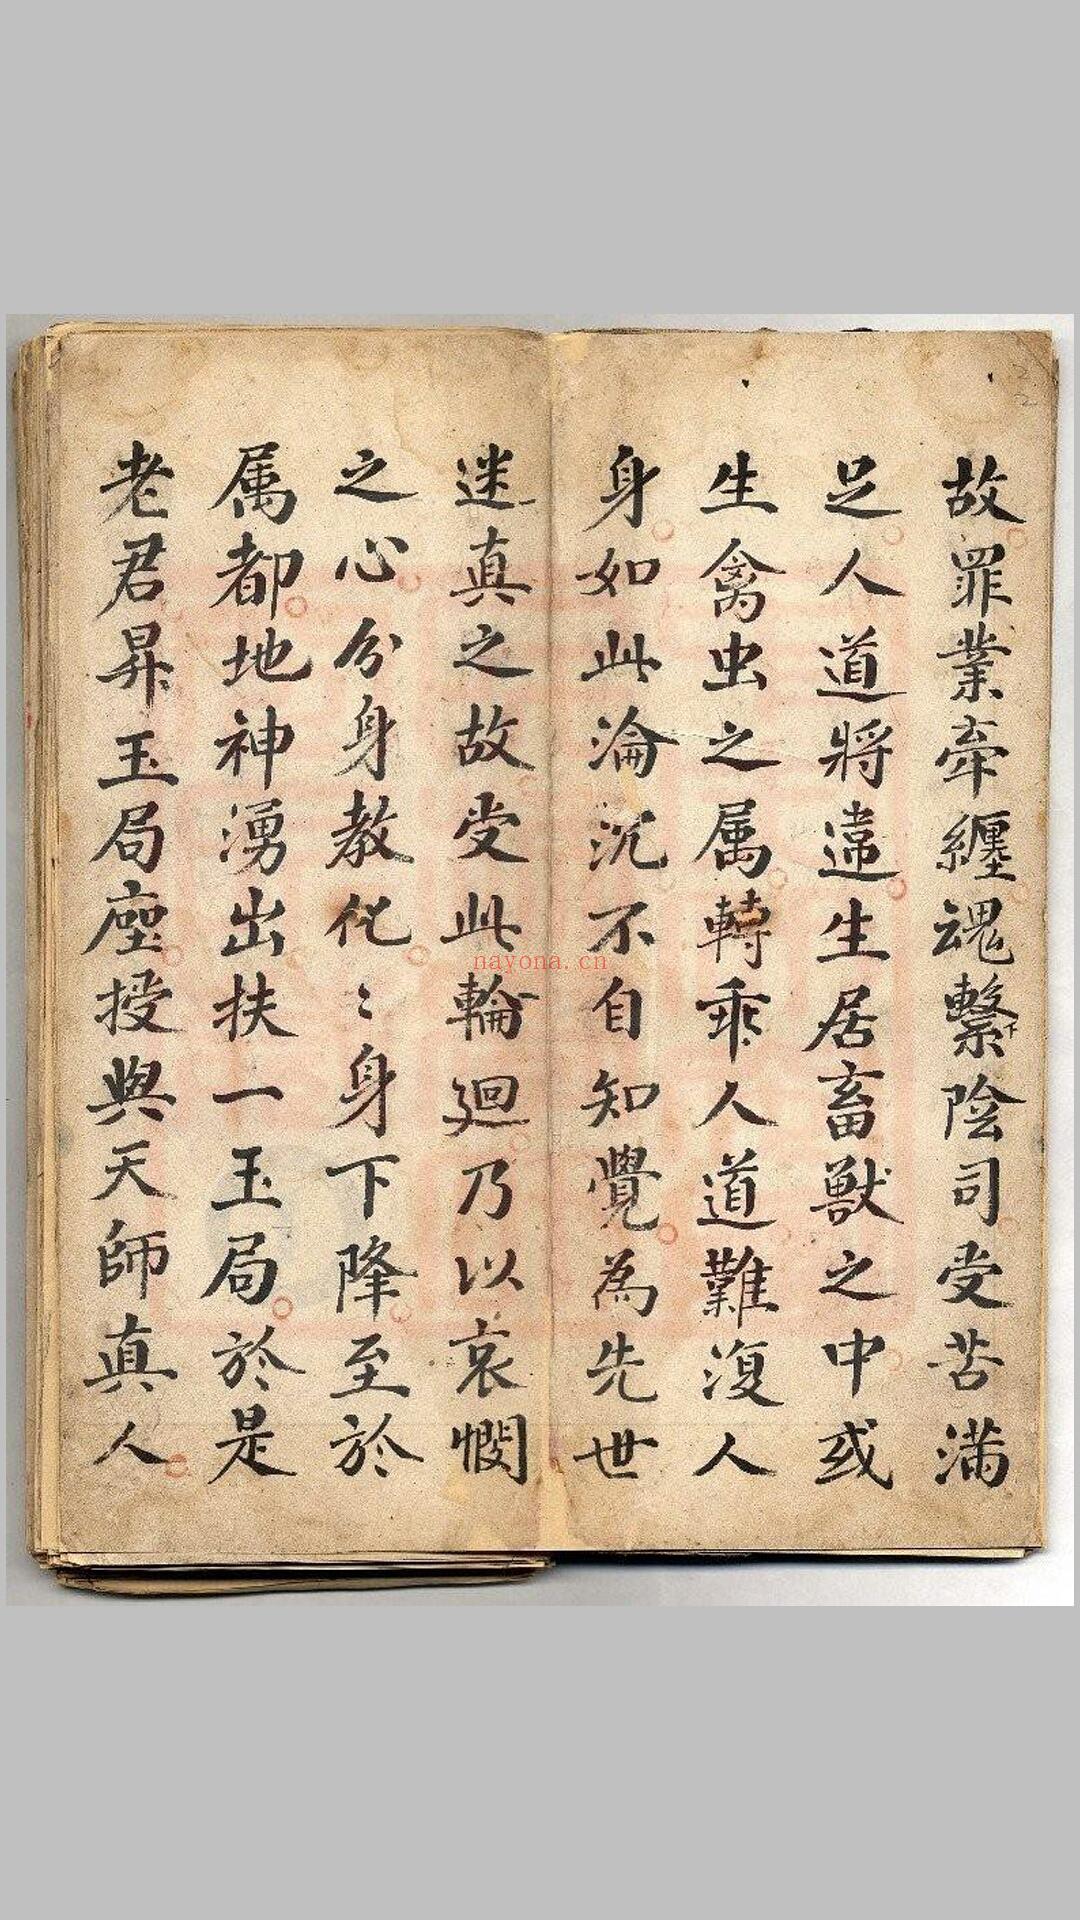 故罪業牽纏魂繫陰司受苦滿
下
足人道將違生居畜獸之中或
生禽虫之属轉乖人道難復人
身如此淪沉不自知覺為先世
迷真之故受此輪廻乃以哀憫
之心分身教化〻身下降至於
属都地神湧出扶一玉局於是
老君昇玉局座授與天師真人
nayona.cn